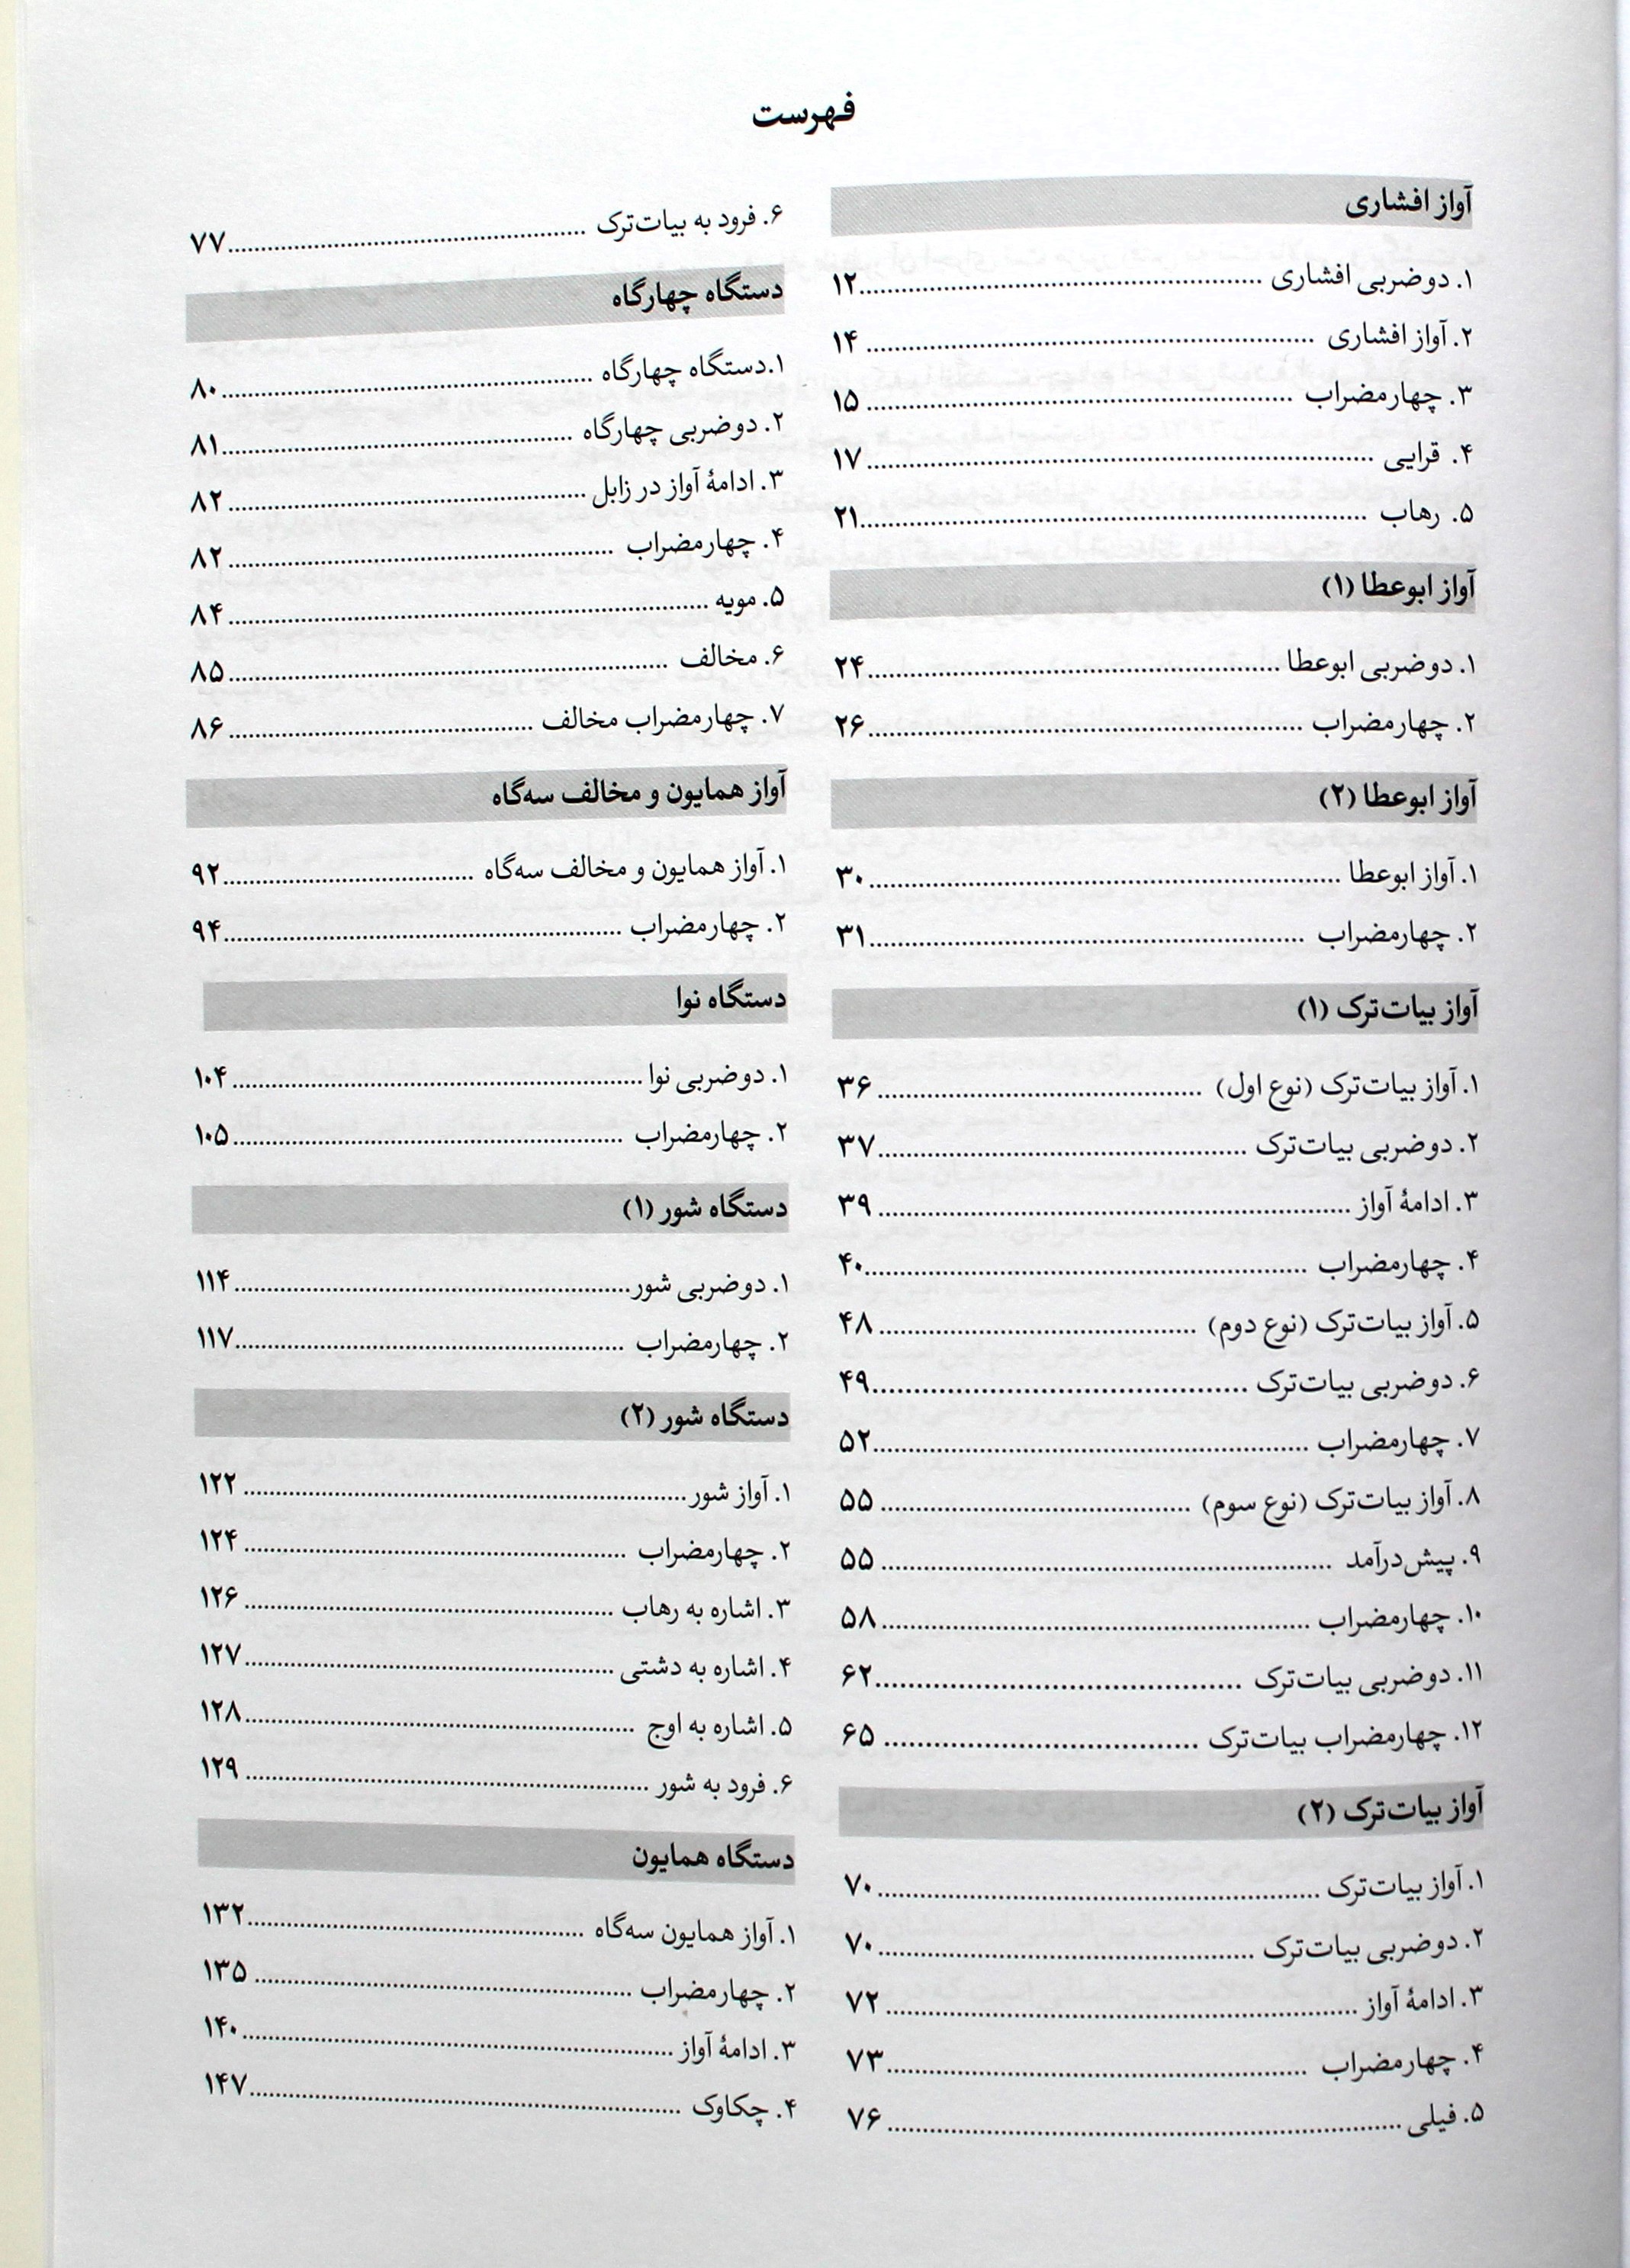 فهرست
آواز افشاری
۱. دوضربی افشاری ........ ۱۲
۲. آواز افشاری ........ ۱۴
۳. چهارمضراب ........ ۱۵
۴. قرایی ........ ۱۷
۵. رهاب ........ ۲۱
آواز ابوعطا (۱)
۱. دوضربی ابوعطا ........ ۲۴
۲. چهارمضراب ........ ۲۶
آواز ابوعطا (۲)
۱. آواز ابوعطا ........ ۳۰
۲. چهارمضراب ........ ۳۱
آواز بیات‌ترک (۱)
۱. آواز بیات‌ترک (نوع اول) ........ ۳۶
۲. دوضربی بیات‌ترک ........ ۳۷
۳. ادامهٔ آواز ........ ۳۹
۴. چهارمضراب ........ ۴۰
۵. آواز بیات‌ترک (نوع دوم) ........ ۴۸
۶. دوضربی بیات‌ترک ........ ۴۹
۷. چهارمضراب ........ ۵۲
۸. آواز بیات‌ترک (نوع سوم) ........ ۵۵
۹. پیش‌درآمد ........ ۵۵
۱۰. چهارمضراب ........ ۵۸
۱۱. دوضربی بیات‌ترک ........ ۶۲
۱۲. چهارمضراب بیات‌ترک ........ ۶۵
آواز بیات‌ترک (۲)
۱. آواز بیات‌ترک ........ ۷۰
۲. دوضربی بیات‌ترک ........ ۷۰
۳. ادامهٔ آواز ........ ۷۲
۴. چهارمضراب ........ ۷۳
۵. فیلی ........ ۷۶
۶. فرود به بیات‌ترک ........ ۷۷
دستگاه چهارگاه
۱.دستگاه چهارگاه ........ ۸۰
۲. دوضربی چهارگاه ........ ۸۱
۳. ادامهٔ آواز در زابل ........ ۸۲
۴. چهارمضراب ........ ۸۲
۵. مویه ........ ۸۴
۶. مخالف ........ ۸۵
۷. چهارمضراب مخالف ........ ۸۶
آواز همایون و مخالف سه‌گاه
۱. آواز همایون و مخالف سه‌گاه ........ ۹۲
۲. چهارمضراب ........ ۹۴
دستگاه نوا
۱. دوضربی نوا ........ ۱۰۴
۲. چهارمضراب ........ ۱۰۵
دستگاه شور (۱)
۱. دوضربی شور ........ ۱۱۴
۲. چهارمضراب ........ ۱۱۷
دستگاه شور (۲)
۱. آواز شور ........ ۱۲۲
۲. چهارمضراب ........ ۱۲۴
۳. اشاره به رهاب ........ ۱۲۶
۴. اشاره به دشتی ........ ۱۲۷
۵. اشاره به اوج ........ ۱۲۸
۶. فرود به شور ........ ۱۲۹
دستگاه همایون
۱. آواز همایون سه‌گاه ........ ۱۳۲
۲. چهارمضراب ........ ۱۳۵
۳. ادامهٔ آواز ........ ۱۴۰
۴. چکاوک ........ ۱۴۷